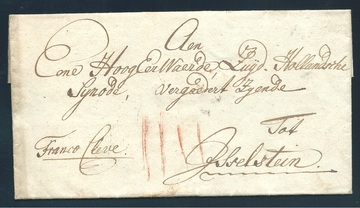 Aen
Eene HoogEerWaerde, Zuyd Hollandsche
Synode, vergadert Zynde
Tot
Franco Cleve.
IJsselstein.